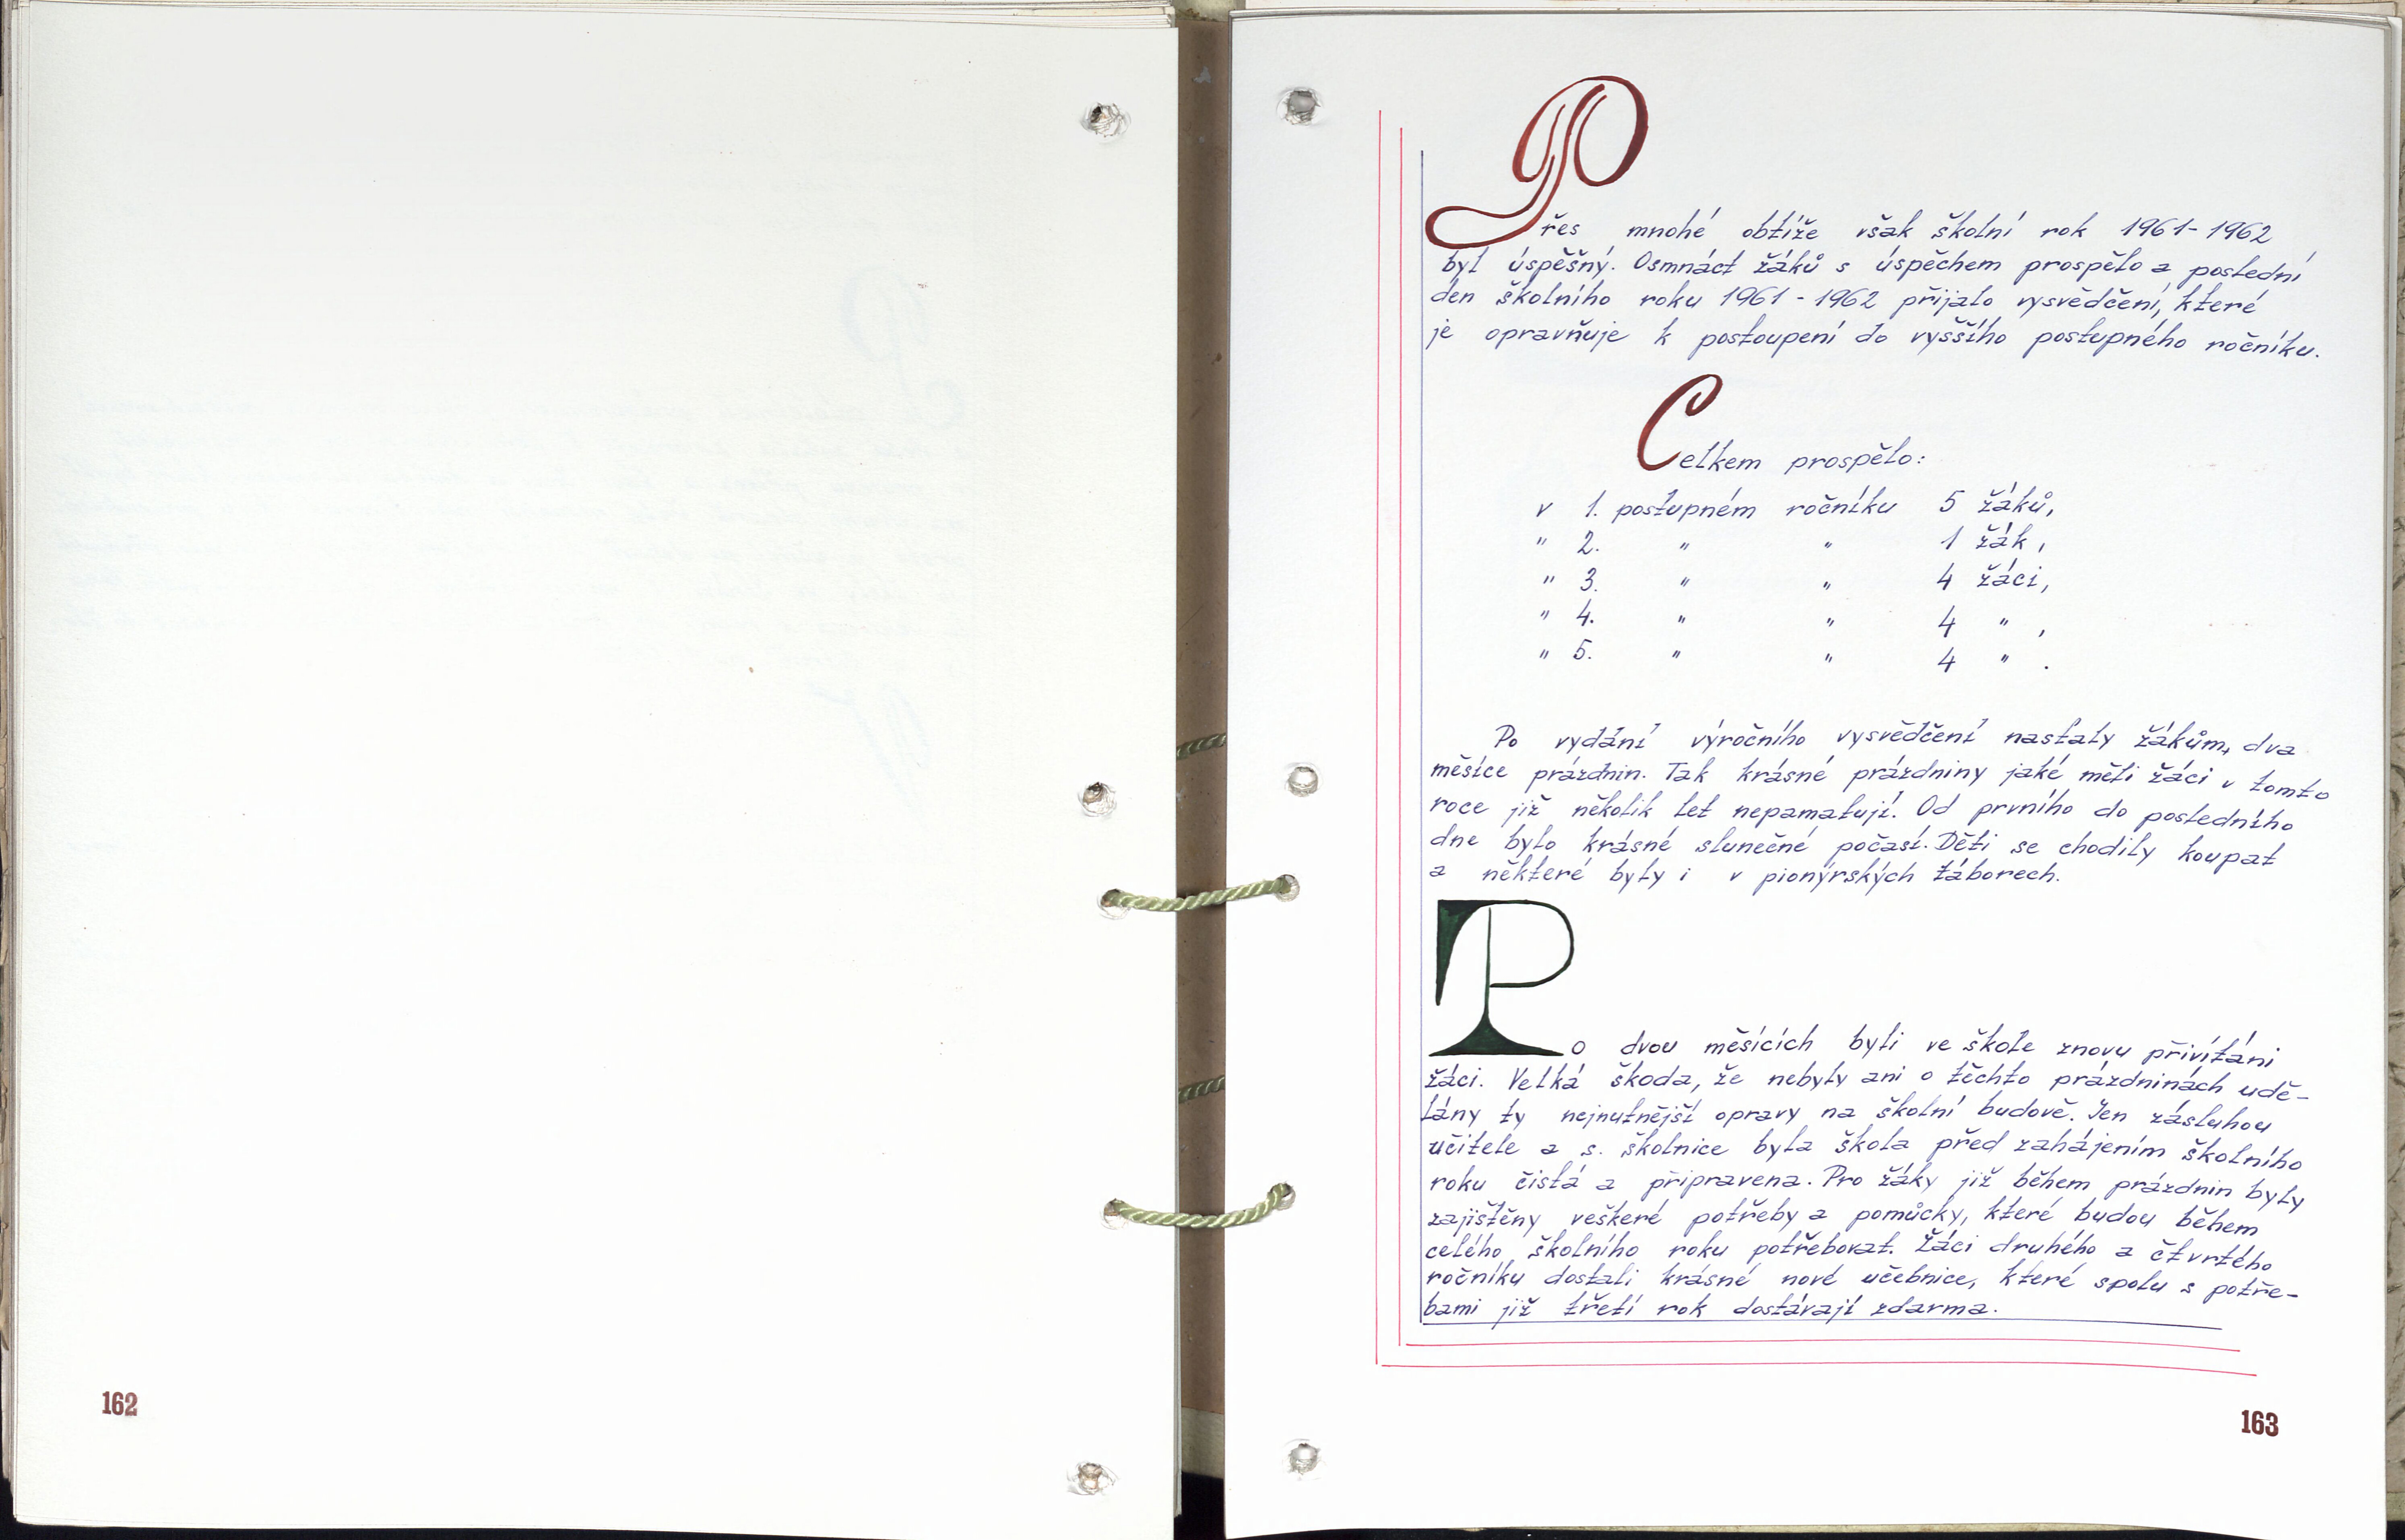 Přes mnohé obtíže však školní rok 1961-1962
byl úspěšný. Osmnáct žáků s úspěchem prospělo a poslední
den školního roku 1961-1962 přijalo vysvědčení, které
je opravňuje k postoupení do vyššího postupného ročníku.
Celkem prospělo:
v 1. postupném ročníku 5 žáků,
" 2. " " 1 žák,
" 3. " " 4 žáci,
" 4. " " 4 " ,
" 5. " " 4 " .
Po vydání výročního vysvědčení nastaly žákům, dva
měsíce prázdnin. Tak krásné prázdniny jaké měli žáci v tomto
roce již několik let nepamatují. Od prvního do posledního
dne bylo krásné slunečné počasí. Děti se chodily koupat
a některé byly i v pionýrských táborech.
Po dvou měsících byli ve škole znovu přivítáni
žáci. Velká škoda, že nebyly ani o těchto prázdninách udě-
lány ty nejnutnější opravy na školní budově. Jen zásluhou
učitele a s. školnice byla škola před zahájením školního
roku čistá a připravena. Pro žáky již během prázdnin byly
zajištěny veškeré potřeby a pomůcky, které budou během
celého školního roku potřebovat. Žáci druhého a čtvrtého
ročníku dostali krásné nové učebnice, které spolu s potře-
bami již třetí rok dostávají zdarma.
162
163